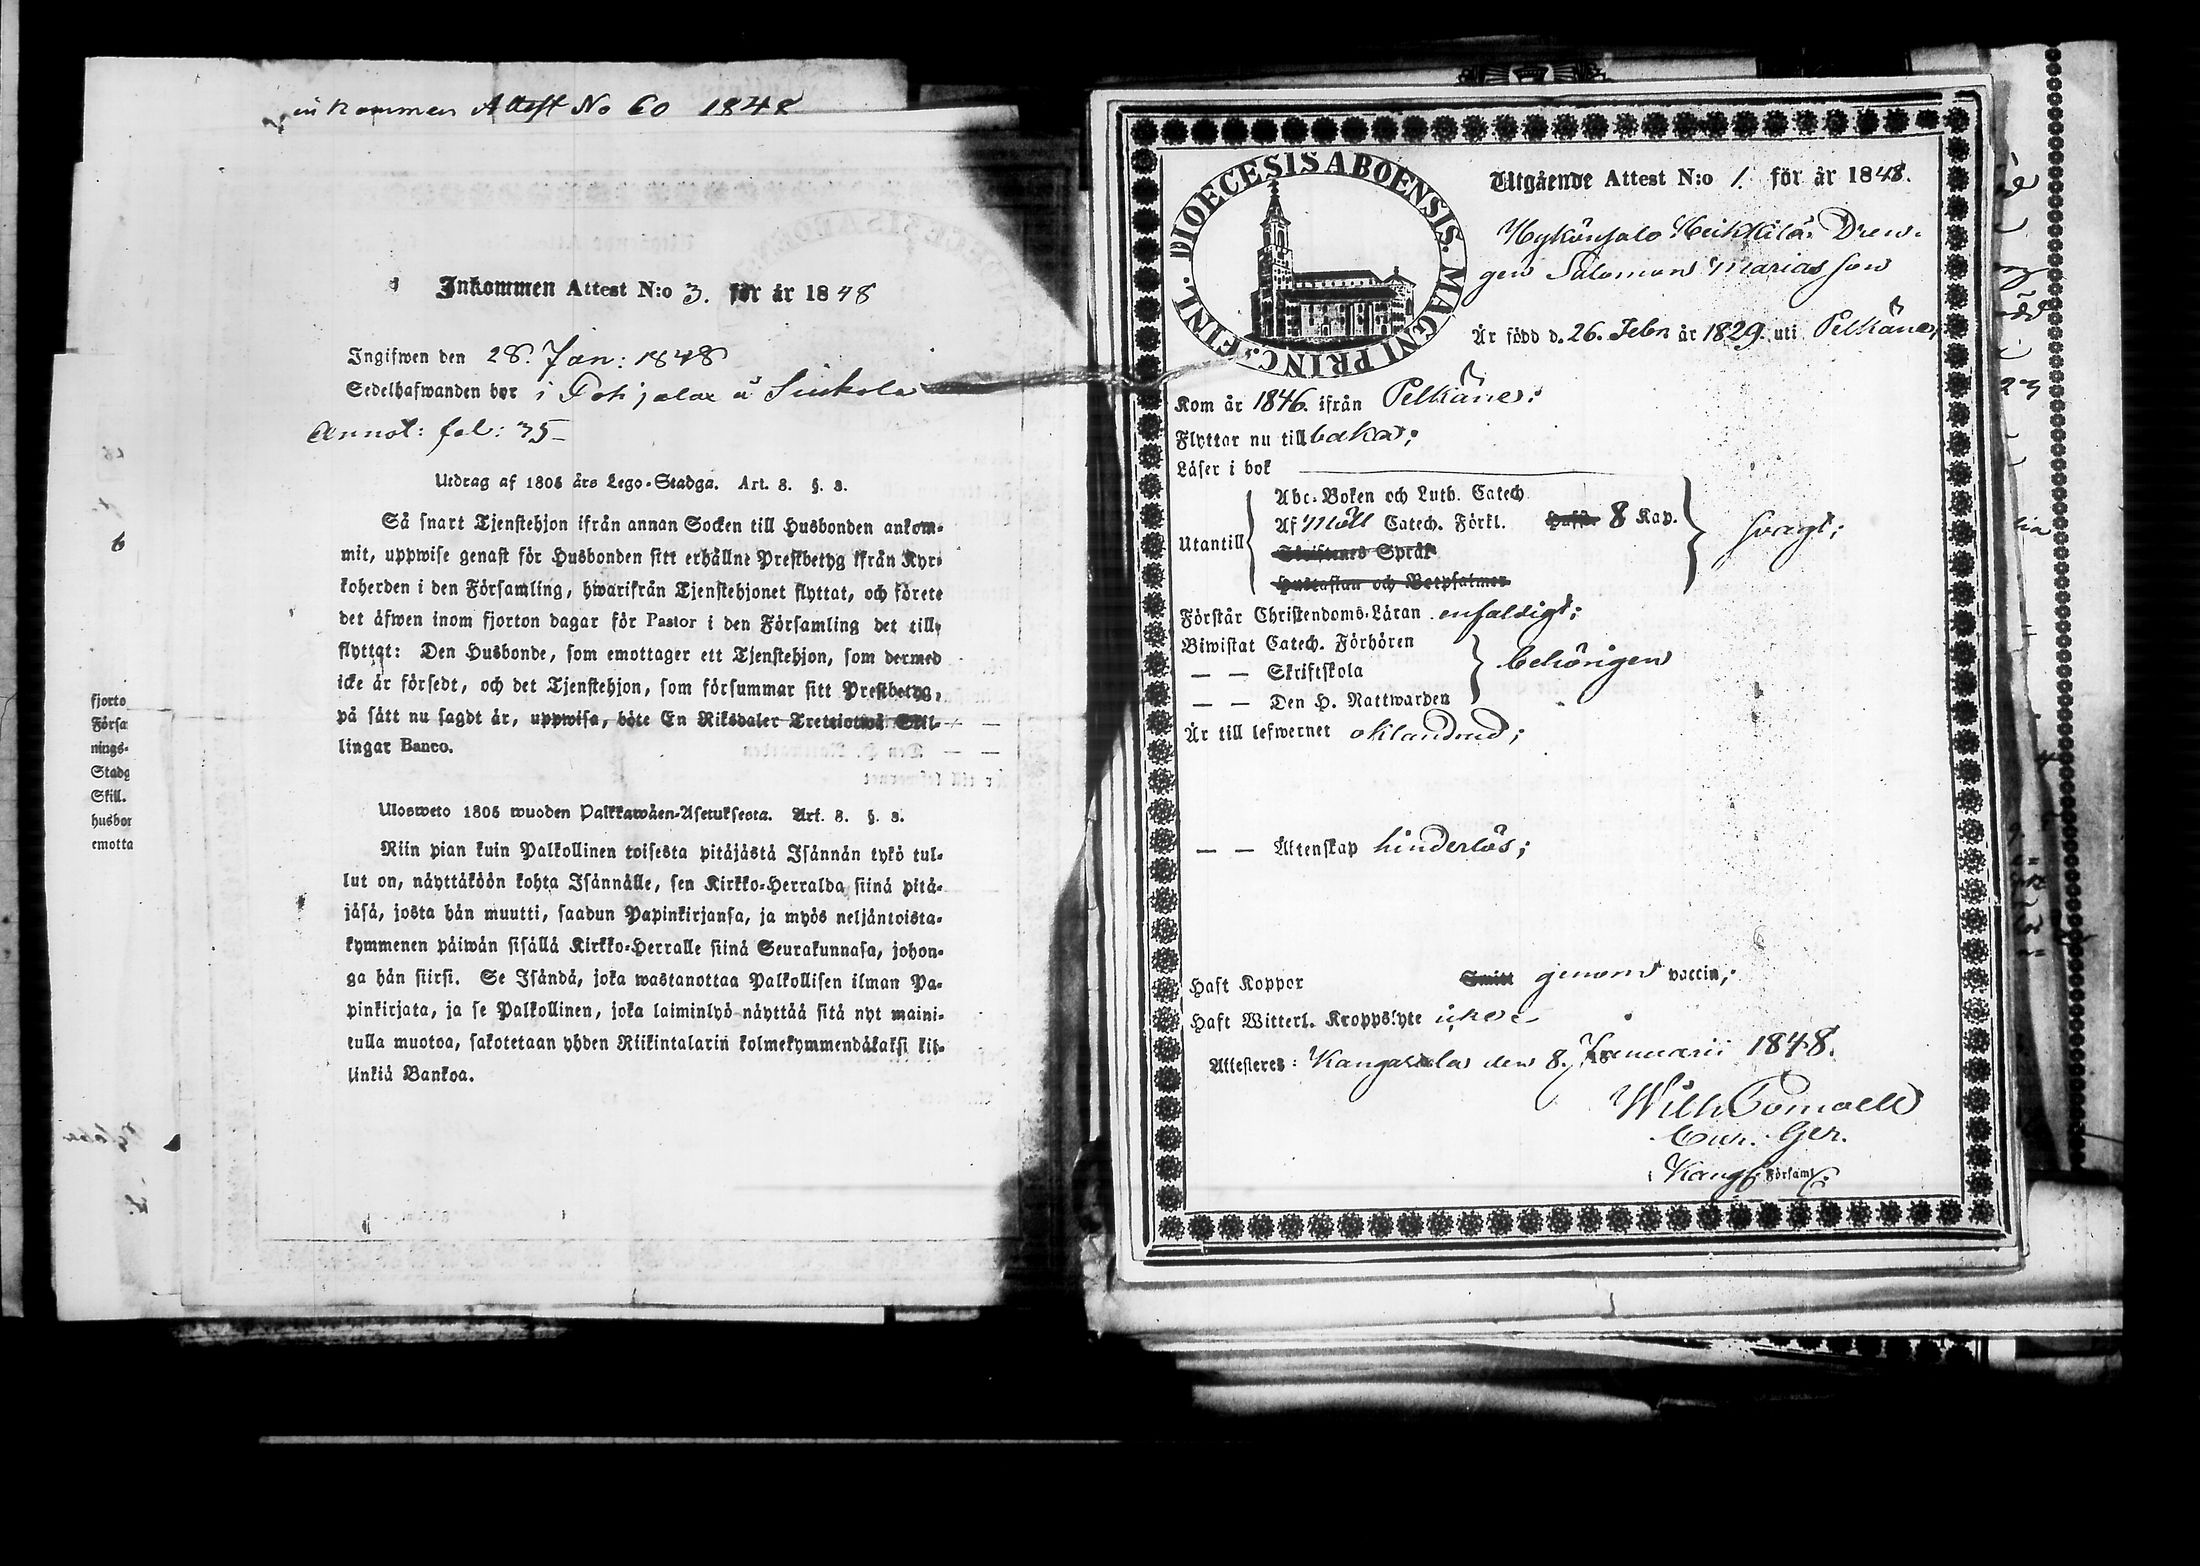 inkommen Attest No 60 1848
Inkommen Attest N:o 3. för år 1848
Ingifwen den 28. Jan: 1848
Sedelhafwanden bor i Pohjalax å Sinkola
Annot: fol: 35
Utdrag af 1805 års Lego-Stadga. Art. 8. §. 3.
Så snart Tjenstehjon ifrån annan Socken till Husbonden ankom-
mit, uppwise genast för Husbonden sitt erhållne Prestbetyg ifrån Kyr-
koherden i den Församling, hwarifrån Tjenstehjonet flyttat, och förete
det äfwen inom fjorton dagar för Pastor i den Församling det till-
flyttat: Den Husbonde, som emottager ett Tjenstehjon, som dermed
icke är försedt, och det Tjenstehjon, som försummar sitt Prestbetyg,
på sätt nu sagdt är, uppwisa, böte En Riksdaler Trettiotwå Skil-
lingar Banco.
Ulosweto 1805 wuoden Palkkawäen-Asetuksesta. Art. 8. §. 3.
Niin pian kuin Palkollinen toisesta pitäjästä Isännän tykö tul-
lut on, näyttäköön kohta Isännälle, sen Kirkko-Herralda siinä pitä-
jäsä, josta hän muutti, saadun Papinkirjansa, ja myös neljäntoista-
kymmenen päiwän sisällä Kirkko-Herralle siinä Seurakunnasa, johon-
ga hän siirsi. Se Isändä, joka wastanottaa Palkollisen ilman Pa-
pinkirjata, ja se Palkollinen, joka laiminlyö näyttää sitä nyt maini-
tulla muotoa, sakotetaan yhden Riikintalarin kolmekymmendäkaksi kil-
linkiä Bankoa.
fjorto
Försa
nings-
Stadg
Skill.
husbor
emotta
DIOECESIS ABOENSIS. MAGNI PRINC. FINL.
Utgående Attest N:o 1. för år 1848.
Hykönsalo Heikkilä Dren-
gen Salomon Mariasson
Är född d. 26. Febr. år 1829. uti Pelkäne,
Kom år 1846. ifrån Pelkäne;
Flyttar nu tillbaka;
Läser i bok
Utantill
Abc-Boken och Luth. Catech
Af Möll Catech. Förkl. Hufst. 8 Kap.
Skriftenes Språk
Hustaflan och Botpsalmer
svagt;
Förstår Christendoms-Läran enfaldigt;
Biwistat Catech. Förhören
— — Skriftskola
— — Den H. Nattwarden
behörigen
Är till lefwernet oklandrad;
— — Äktenskap hinderlös;
Haft Koppor Smitt genom vaccin;
Haft Witterl. Kroppslyte icke
Attesteres: Kangasala den 8. Januarii 1848.
Wilh. Pomoell
Cur. Ger.
Kang. Församl.